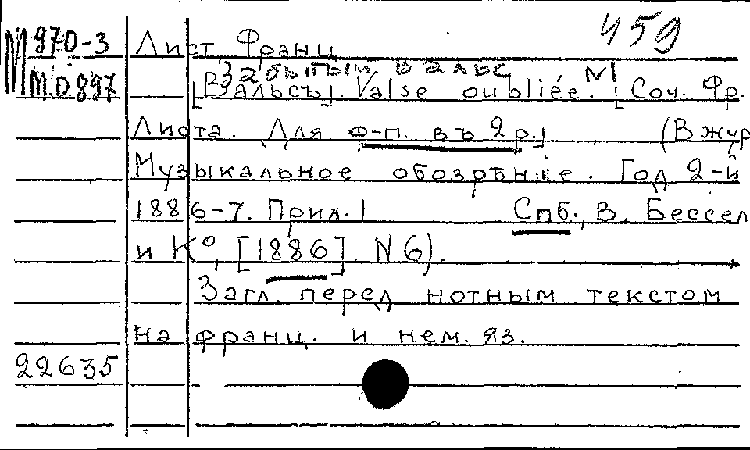 459
М 970-3
MD897
Лист Франц
Забытый вальс
[Вальсъ]. Valse oubliée. М. [Соч. Фр.
Листа. Для ф-п. въ 2 р.] (В жур
Музыкальное обозрѣніе. Год 2-й
1886-7. Прил. 1 Спб., В. Бессел
и К°, [1886]. N 6).
Загл. перед нотным текстом
на франц. и нем. яз.
22635